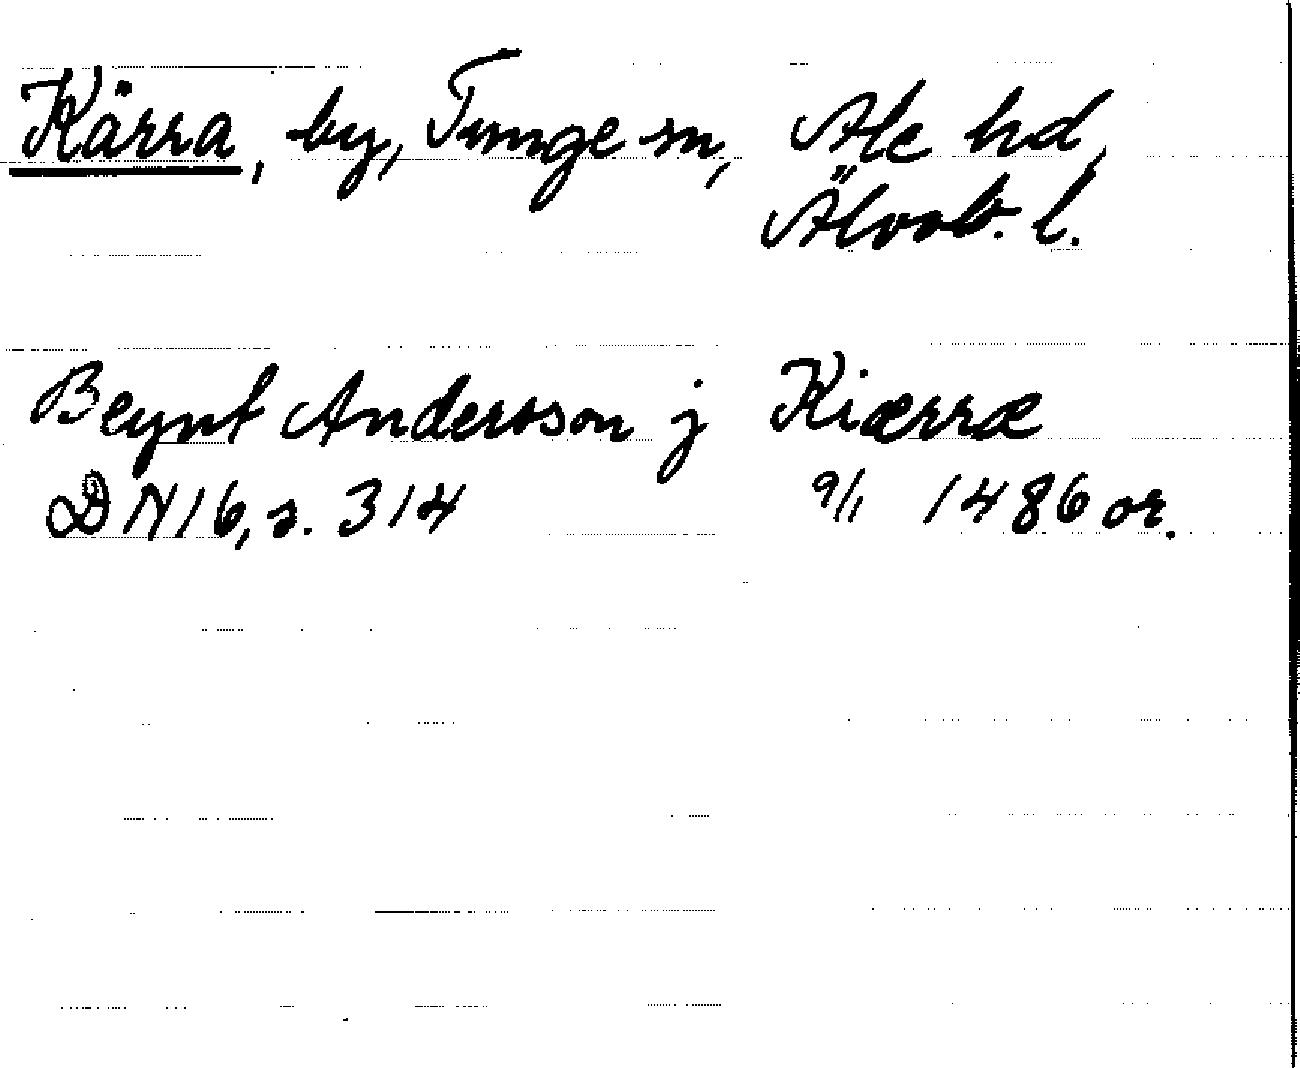 Kärra, by, Tunge sn, Ale hd,
Älvsb. l.
Beynt Andersson j Kiærræ
DN 16, s. 314 9/1 1486 or.